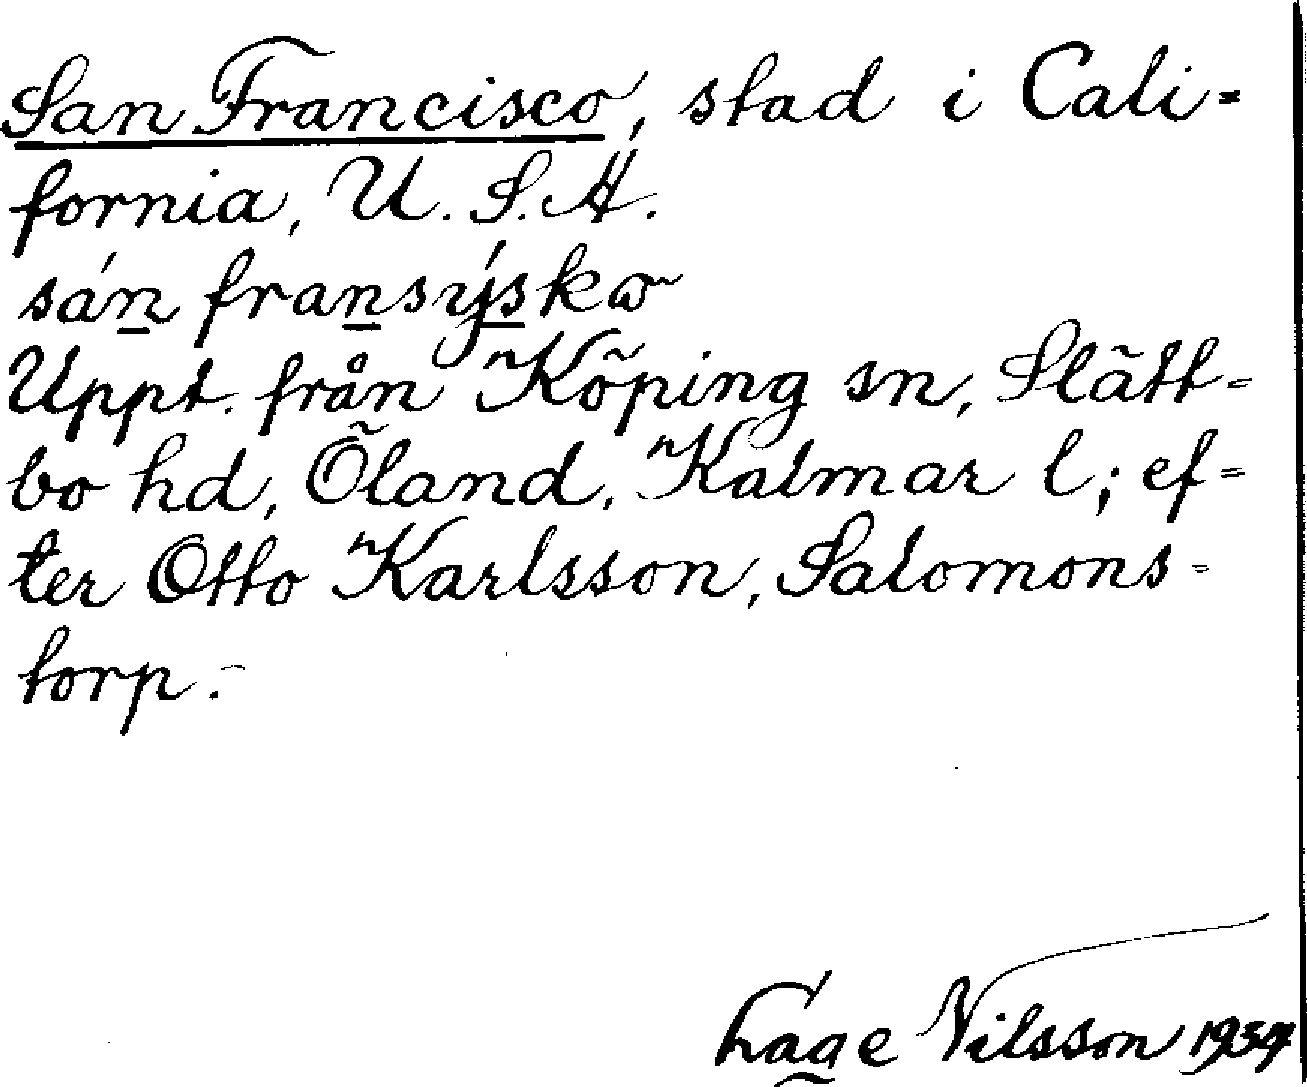 San Francisco, stad i Cali-
fornia, U. S. A.
sán fransýskω
Uppt. från Köping sn, Slätt-
bo hd, Öland, Kalmar l; ef-
ter Otto Karlsson, Salomons-
torp.-
Lage Nilsson 1934